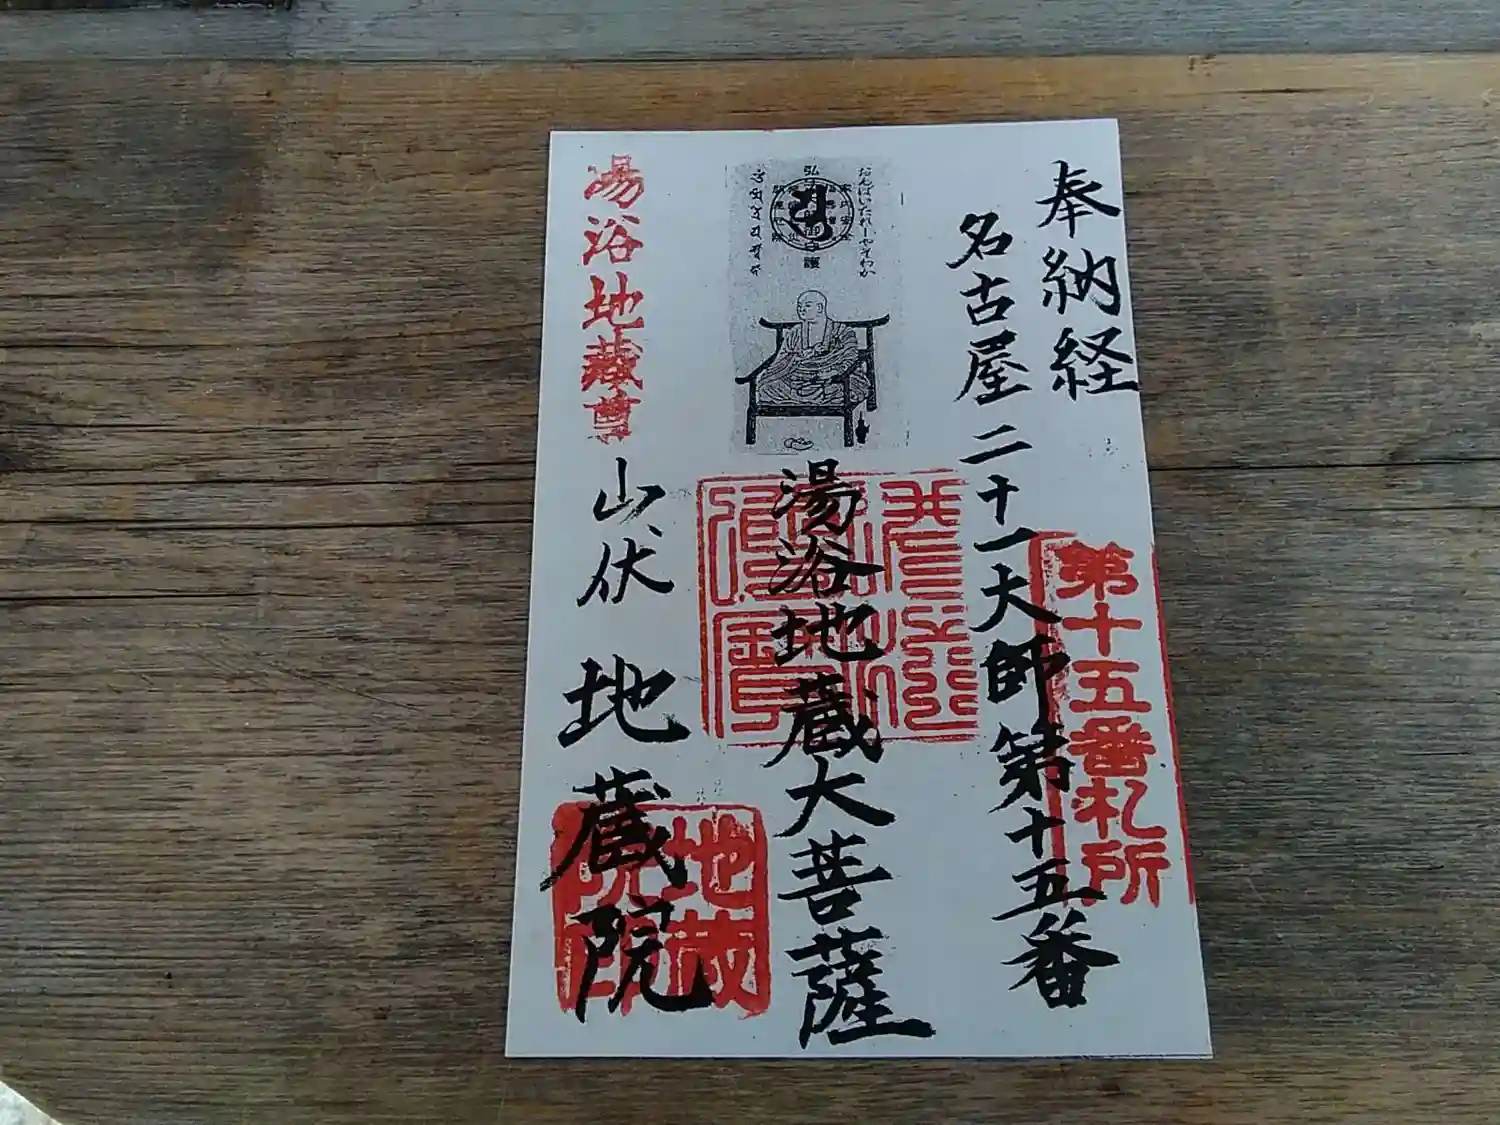 奉納経
第十五番札所
名古屋二十一大師第十五番
おんばいたれーやそわか
湯浴地蔵大菩薩
湯浴地蔵尊
山伏
地蔵院
地蔵
院印